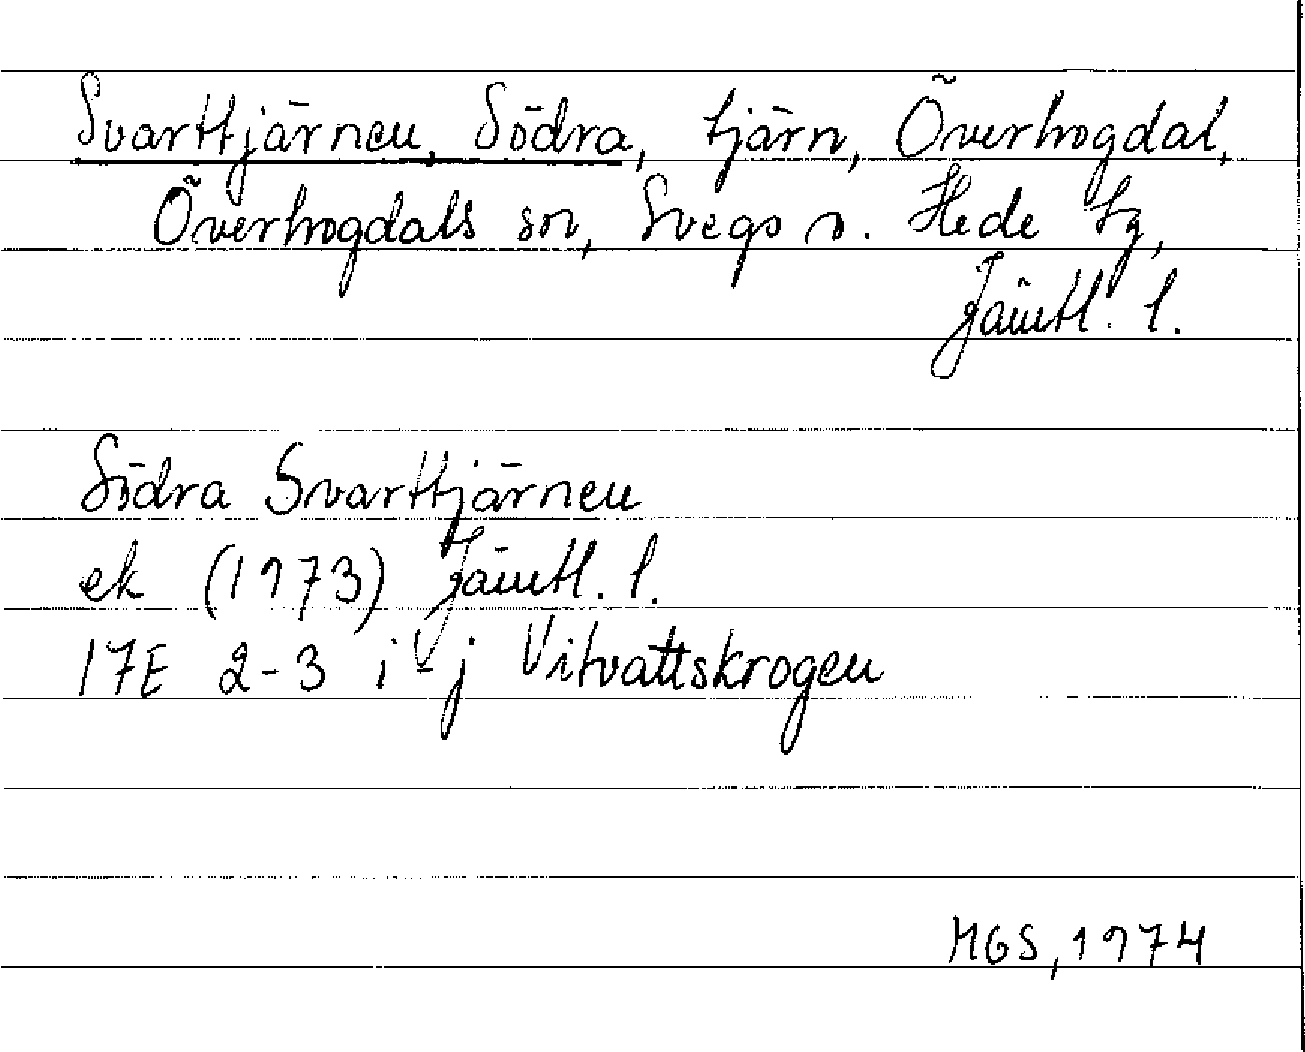 Svarttjärnen, Södra, tjärn, Överhogdal,
Överhogdals sn, Svegs o. Hede tg,
Jämtl. l.
Södra Svarttjärnen
ek (1973) Jämtl. l.
17E 2-3 i-j Vitvattskrogen
MGS, 1974